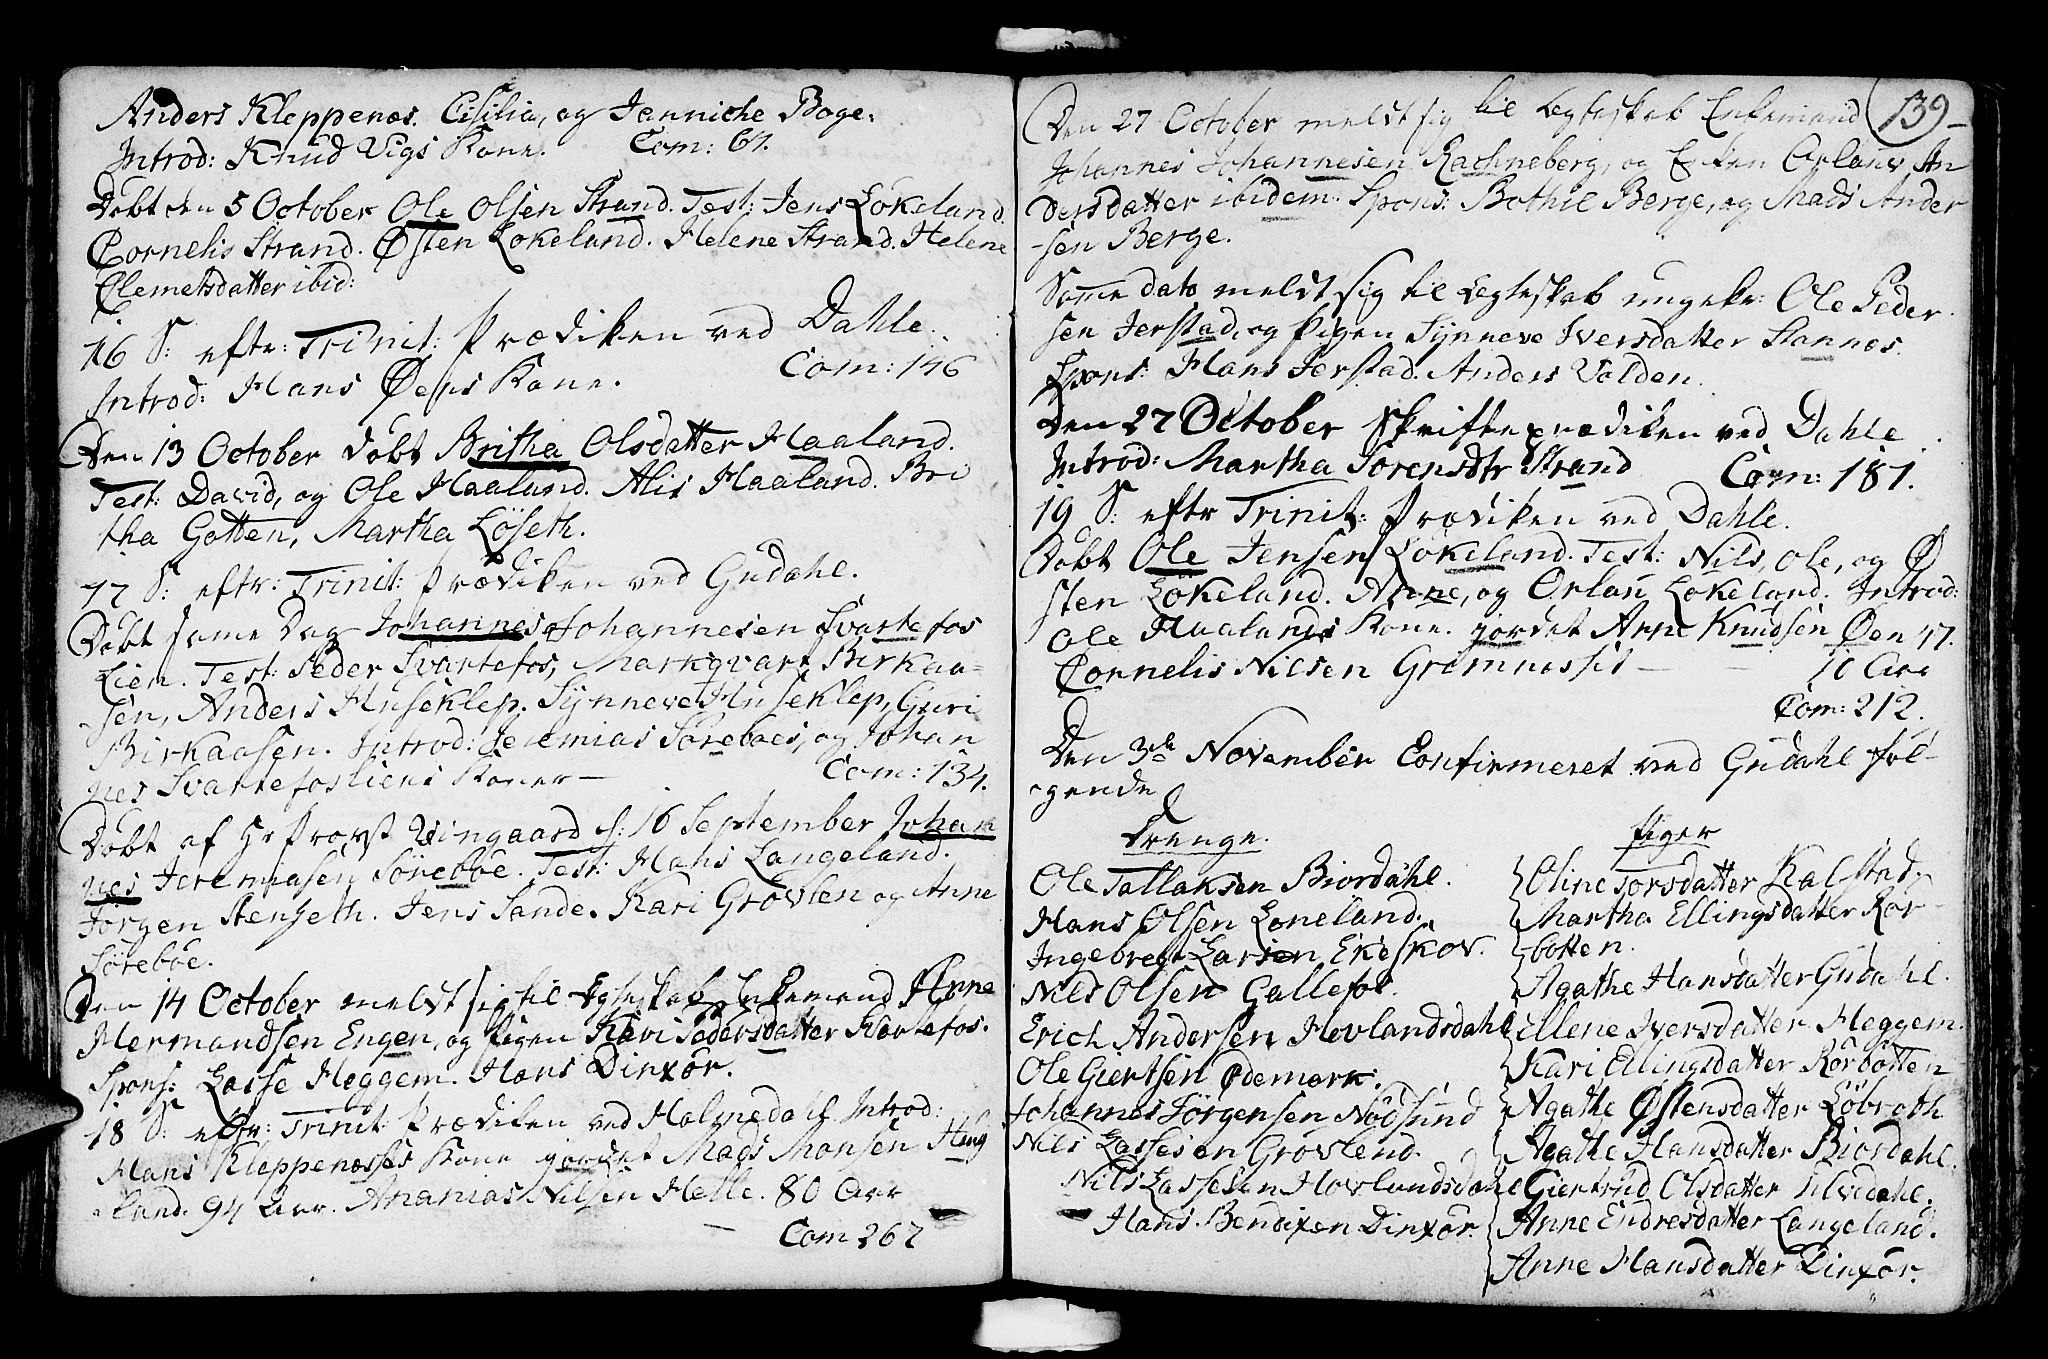 Anders Kleppenæs. Cisilia, og Jenniche Boge.
Introd: Knud Vigs Kone. Com: 67.
Døbt den 5 October Ole Olsen Strand. Test: Jens Løkeland.
Cornelis Strand. Østen Løkeland. Helene Strand. Helene
Clemetsdatter ibid:
16 S: eftr: Trinit: Prædiken ved Dahle.
Introd: Hans Øens Kone. Com: 146
Den 13 October døbt Britha Olsdatter Haaland.
Test: David, og Ole Haaland. Alis Haaland. Bri
tha Gotten, Martha Løseth.
17 S: eftr: Trinit: Prædiken ved Gudahl.
Døbt samme Dag Johannes Johannesen Svartefos
Lien. Test: Peder Svartefos, Markqvart Birkaa-
sen, Anders Huseklep. Synneve Huseklep, Guri
Birkaasen. Introd: Jeremias Sørebøes, og Johan
nes Svartefosliens Koner — Com: 134.
Døbt af Hr Provst Wingaard d: 16 September Johan
nes Jeremiasen Sørebøe. Test: Hans Langeland.
Jørgen Stenseth. Jens Sande. Kari Grøvlen og Anne
Sørebøe.
Den 14 October meldt sig til Egteskab Enkemand Arne
Hermandsen Engen, og Pigen Kari Pedersdatter Svartefos.
Spons: Lasse Heggem. Hans Dinxør.
18 S: eftr: Trinit: Prædiken ved Halmedahl. Introd:
Hans Kleppenæsses Kone jordet Mads Monsen Haug
land. 94 Aar. Ananias Nilsen Helle. 80 Aar
Com 267
139
Den 27 October meldt sig til Egteskab Enkemand
Johannes Johannesen Rachneberg, og Enken Orlau An
dersdatter ibidem. Spons: Bothil Berge, og Mads Ander
sen Berge.
Samme dato meldt sig til Egteskab ungekr: Ole Peder
sen Jerstad, og Pigen Synneve Iversdatter Stannes.
Spons: Hans Jerstad. Anders Valden.
Den 27 October Skrifteprædiken ved Dahle.
Introd: Martha Sørensdtr Strand Com: 181.
19 S: eftr Trinit: Prædiken ved Dahle.
Døbt Ole Jensen Løkeland. Test: Nils, Ole, og Ø
sten Løkeland. Anne, og Orlau Løkeland. Introd:
Ole Haalands Kone. jordet Anne Knudsen Øen 47.
Cornelis Nilsen Gremnessit — — 10 Aar
Com: 212.
Den 3de November Confirmeret ved Gudahl føl-
gende
Drenge.
Ole Tollaksen Biordahl.
Hans Olsen Loneland.
Ingebregt Larsen Ekeskov.
Nils Olsen Gallefos.
Erich Andersen Hovlandsdahl
Ole Giertsen Ødemark.
Johannes Jørgensen Nødsund
Nils Lassesen Grøvlend.
Nils Lassesen Hovlandsdahl
Hans Bendixen Dinxør.
Piger
Oline Torsdatter Kalstad.
Martha Ellingsdatter Rør-
botten.
Agathe Hansdatter Gudahl.
Ellene Iversdatter Heggem.
Kari Ellingsdatter Rørbotten
Agathe Østensdatter Løbroth
Agathe Hansdatter Biordahl.
Giertrud Olsdatter Ulvedahl.
Anne Endresdatter Langeland.
Anne Hansdatter Dinxør.